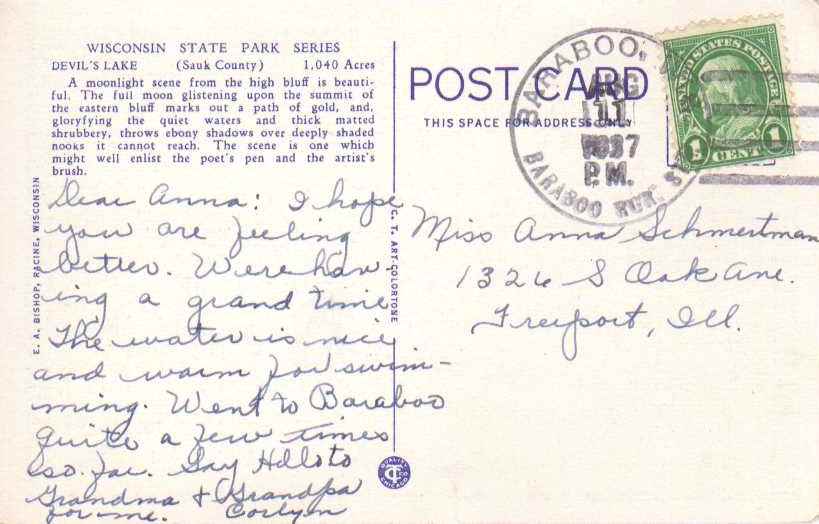 WISCONSIN STATE PARK SERIES
DEVIL'S LAKE (Sauk County) 1,040 Acres
A moonlight scene from the high bluff is beauti-
ful. The full moon glistening upon the summit of
the eastern bluff marks out a path of gold, and,
gloryfying the quiet waters and thick matted
shrubbery, throws ebony shadows over deeply shaded
nooks it cannot reach. The scene is one which
might well enlist the poet's pen and the artist's
brush.
Dear Anna: I hope
you are feeling
better. Were hav
ing a grand time
The water is nice
and warm for swim-
ming. Went to Baraboo
quite a few times
so far. Say Hello to
Grandma & Grandpa
for me. Corlyn
E. A. BISHOP, RACINE, WISCONSIN
C. T. ART-COLORTONE
QUALITY
CT
CHICAGO
POST CARD
THIS SPACE FOR ADDRESS ONLY
BARABOO, W
AUG
11
1937
P.M.
BARABOO RUR. S
UNITED STATES POSTAGE
1 CENT 1
Miss Anna Schmertman
1326 S Oak Ave.
Freeport, Ill.